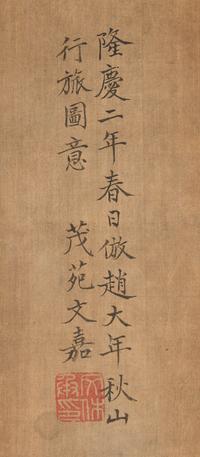 隆慶二年春日倣趙大年秋山
行旅圖意　茂苑文嘉
文休承印